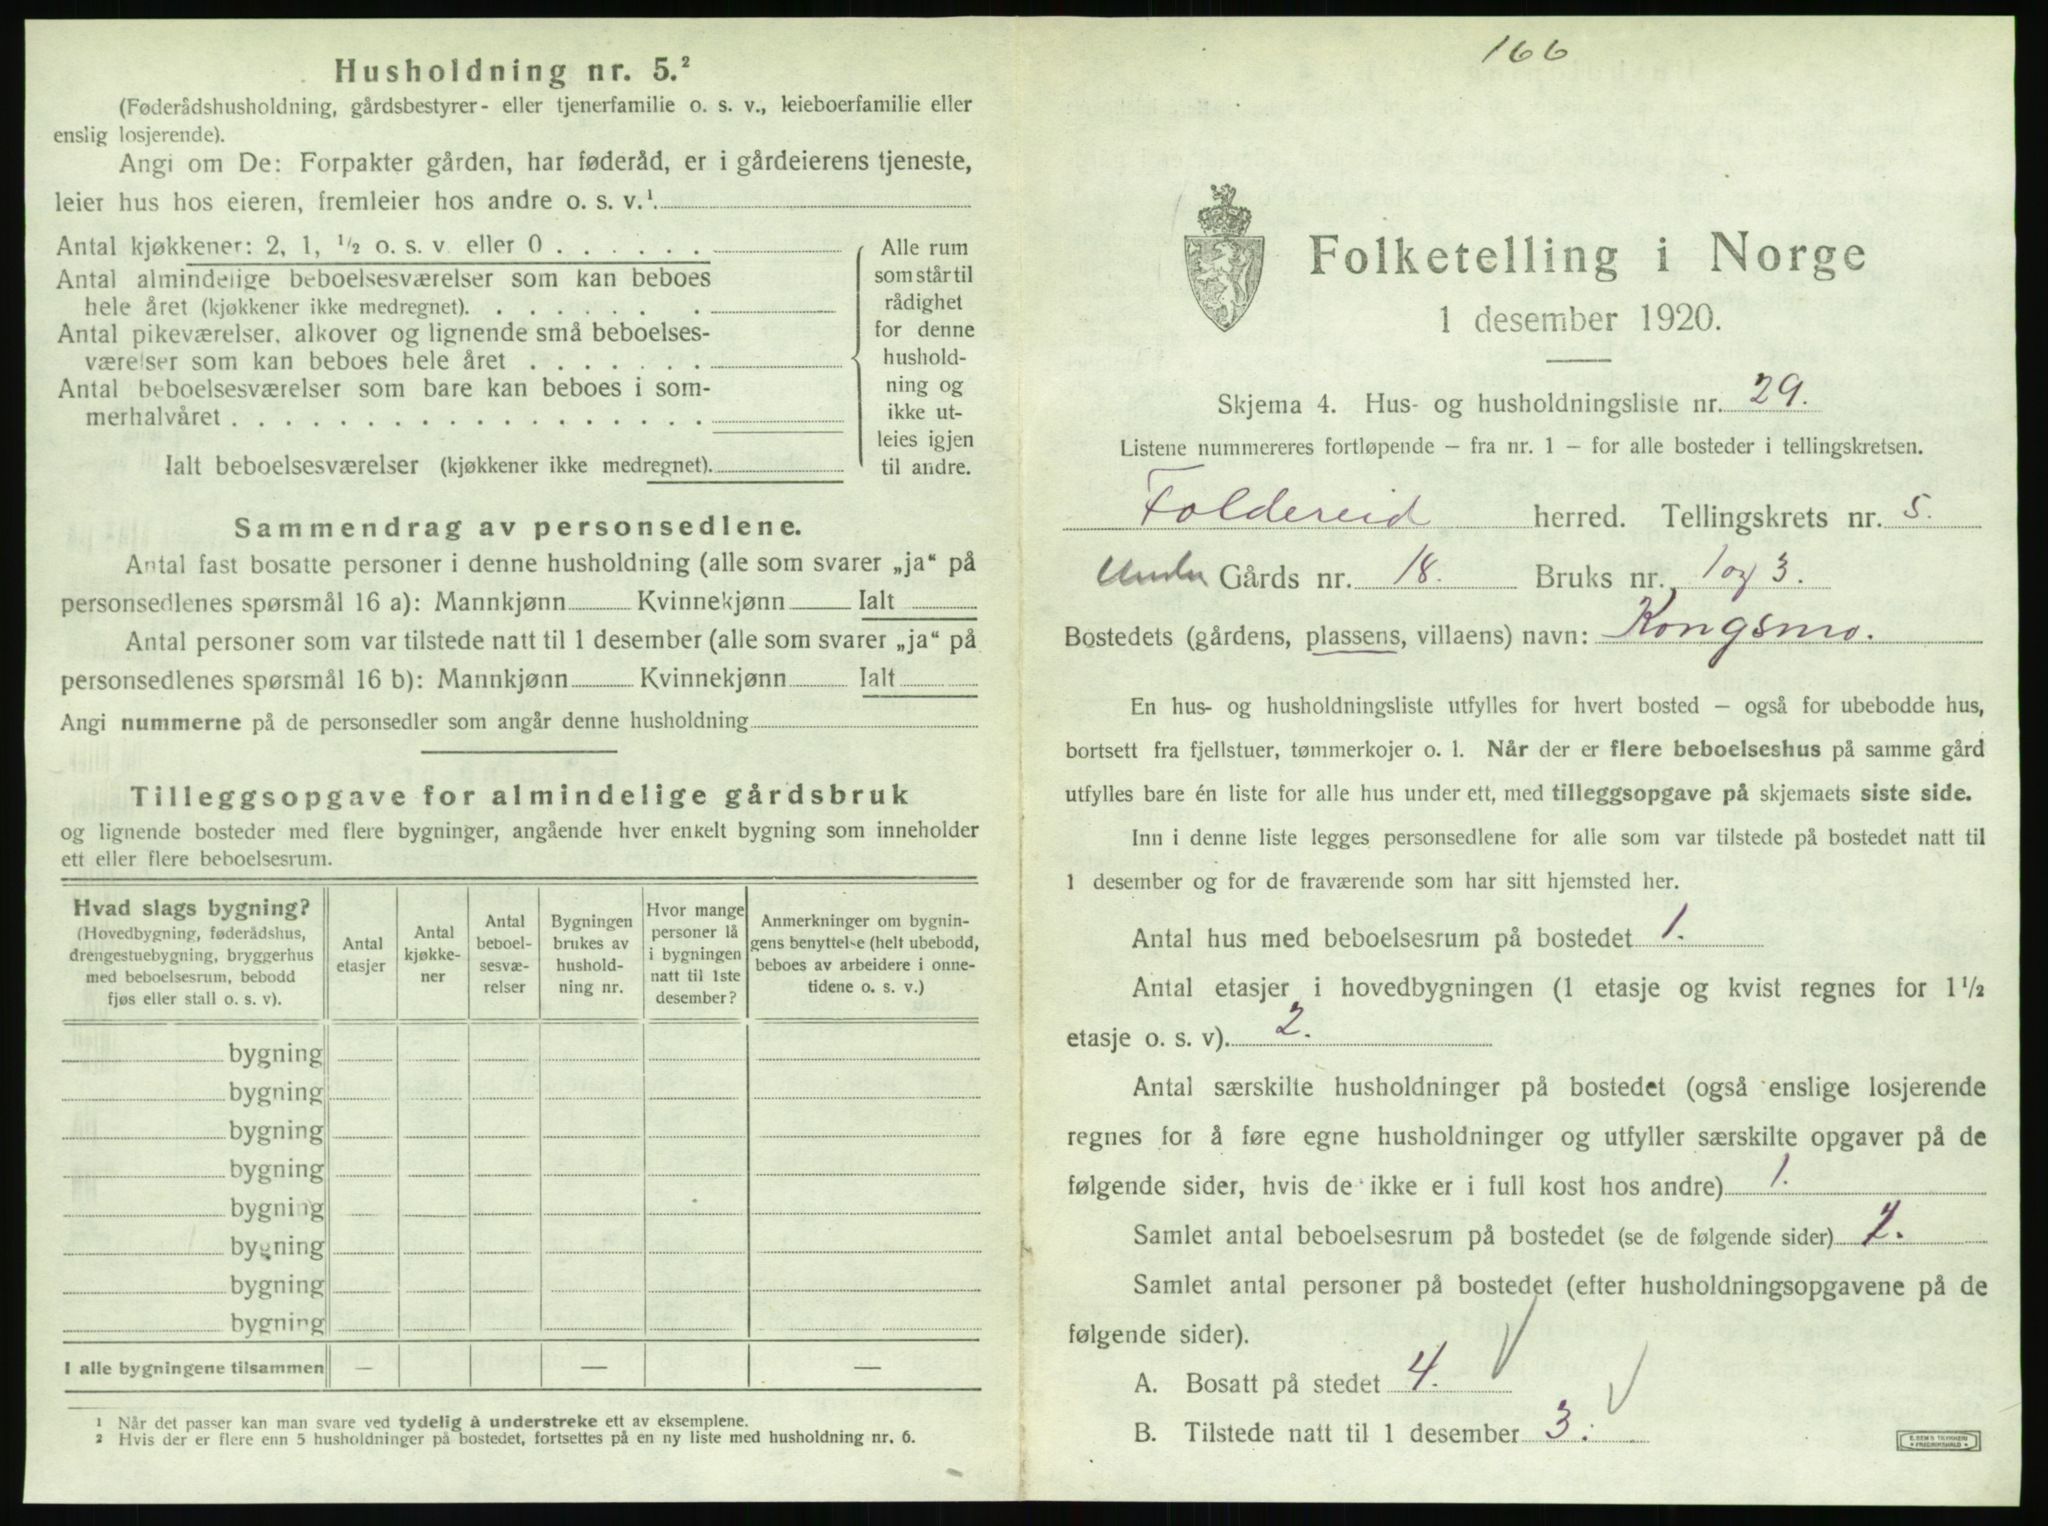 Husholdning nr. 5.²
(Føderådshusholdning, gårdsbestyrer- eller tjenerfamilie o. s. v., leieboerfamilie eller
enslig losjerende).
Angi om De: Forpakter gården, har føderåd, er i gårdeierens tjeneste,
leier hus hos eieren, fremleier hos andre o. s. v.¹
Antal kjøkkener: 2, 1, ½ o. s. v eller 0
Antal almindelige beboelsesværelser som kan beboes
hele året (kjøkkener ikke medregnet).
Antal pikeværelser, alkover og lignende små beboelses-
værelser som kan beboes hele året
Antal beboelsesværelser som bare kan beboes i som-
merhalvåret
Ialt beboelsesværelser (kjøkkener ikke medregnet).
Alle rum
som står til
rådighet
for denne
hushold-
ning og
ikke ut-
leies igjen
til andre.
Sammendrag av personsedlene.
Antal fast bosatte personer i denne husholdning (alle som svarer „ja“ på
personsedlenes spørsmål 16 a): Mannkjønn Kvinnekjønn Ialt
Antal personer som var tilstede natt til 1 desember (alle som svarer „ja“ på
personsedlenes spørsmål 16 b): Mannkjønn Kvinnekjønn Ialt
Angi nummerne på de personsedler som angår denne husholdning
Tilleggsopgave for almindelige gårdsbruk
og lignende bosteder med flere bygninger, angående hver enkelt bygning som inneholder
ett eller flere beboelsesrum.
Hvad slags bygning?
(Hovedbygning, føderådshus,
drengestuebygning, bryggerhus
med beboelsesrum, bebodd
fjøs eller stall o. s. v).
Antal
etasjer
Antal
kjøkke-
ner
Antal
beboel-
sesvæ-
relser
Bygningen
brukes av
hushold-
ning nr.
Hvor mange
personer lå
i bygningen
natt til 1ste
desember?
Anmerkninger om bygnin-
gens benyttelse (helt ubebodd,
beboes av arbeidere i onne-
tidene o. s. v.)
bygning
bygning
bygning
bygning
bygning
bygning
bygning
bygning
I alle bygningene tilsammen — — —
¹ Når det passer kan man svare ved tydelig å understreke ett av eksemplene.
² Hvis der er flere enn 5 husholdninger på bostedet, fortsettes på en ny liste med husholdning nr. 6.
166
Folketelling i Norge
1 desember 1920.
Skjema 4. Hus- og husholdningsliste nr. 29.
Listene nummereres fortløpende – fra nr. 1 – for alle bosteder i tellingskretsen.
Foldereid herred. Tellingskrets nr. 5.
Under Gårds nr. 18. Bruks nr. 1 og 3.
Bostedets (gårdens, plassens, villaens) navn: Kongsmo.
En hus- og husholdningsliste utfylles for hvert bosted – også for ubebodde hus,
bortsett fra fjellstuer, tømmerkojer o. l. Når der er flere beboelseshus på samme gård
utfylles bare én liste for alle hus under ett, med tilleggsopgave på skjemaets siste side.
Inn i denne liste legges personsedlene for alle som var tilstede på bostedet natt til
1 desember og for de fraværende som har sitt hjemsted her.
Antal hus med beboelsesrum på bostedet 1.
Antal etasjer i hovedbygningen (1 etasje og kvist regnes for 1½
etasje o. s. v). 2.
Antal særskilte husholdninger på bostedet (også enslige losjerende
regnes for å føre egne husholdninger og utfyller særskilte opgaver på de
følgende sider, hvis de ikke er i full kost hos andre) 1.
Samlet antal beboelsesrum på bostedet (se de følgende sider) 2.
Samlet antal personer på bostedet (efter husholdningsopgavene på de
følgende sider).
A. Bosatt på stedet 4.
B. Tilstede natt til 1 desember 3.
E. SEM'S TRYKKERI
FREDRIKSHALD